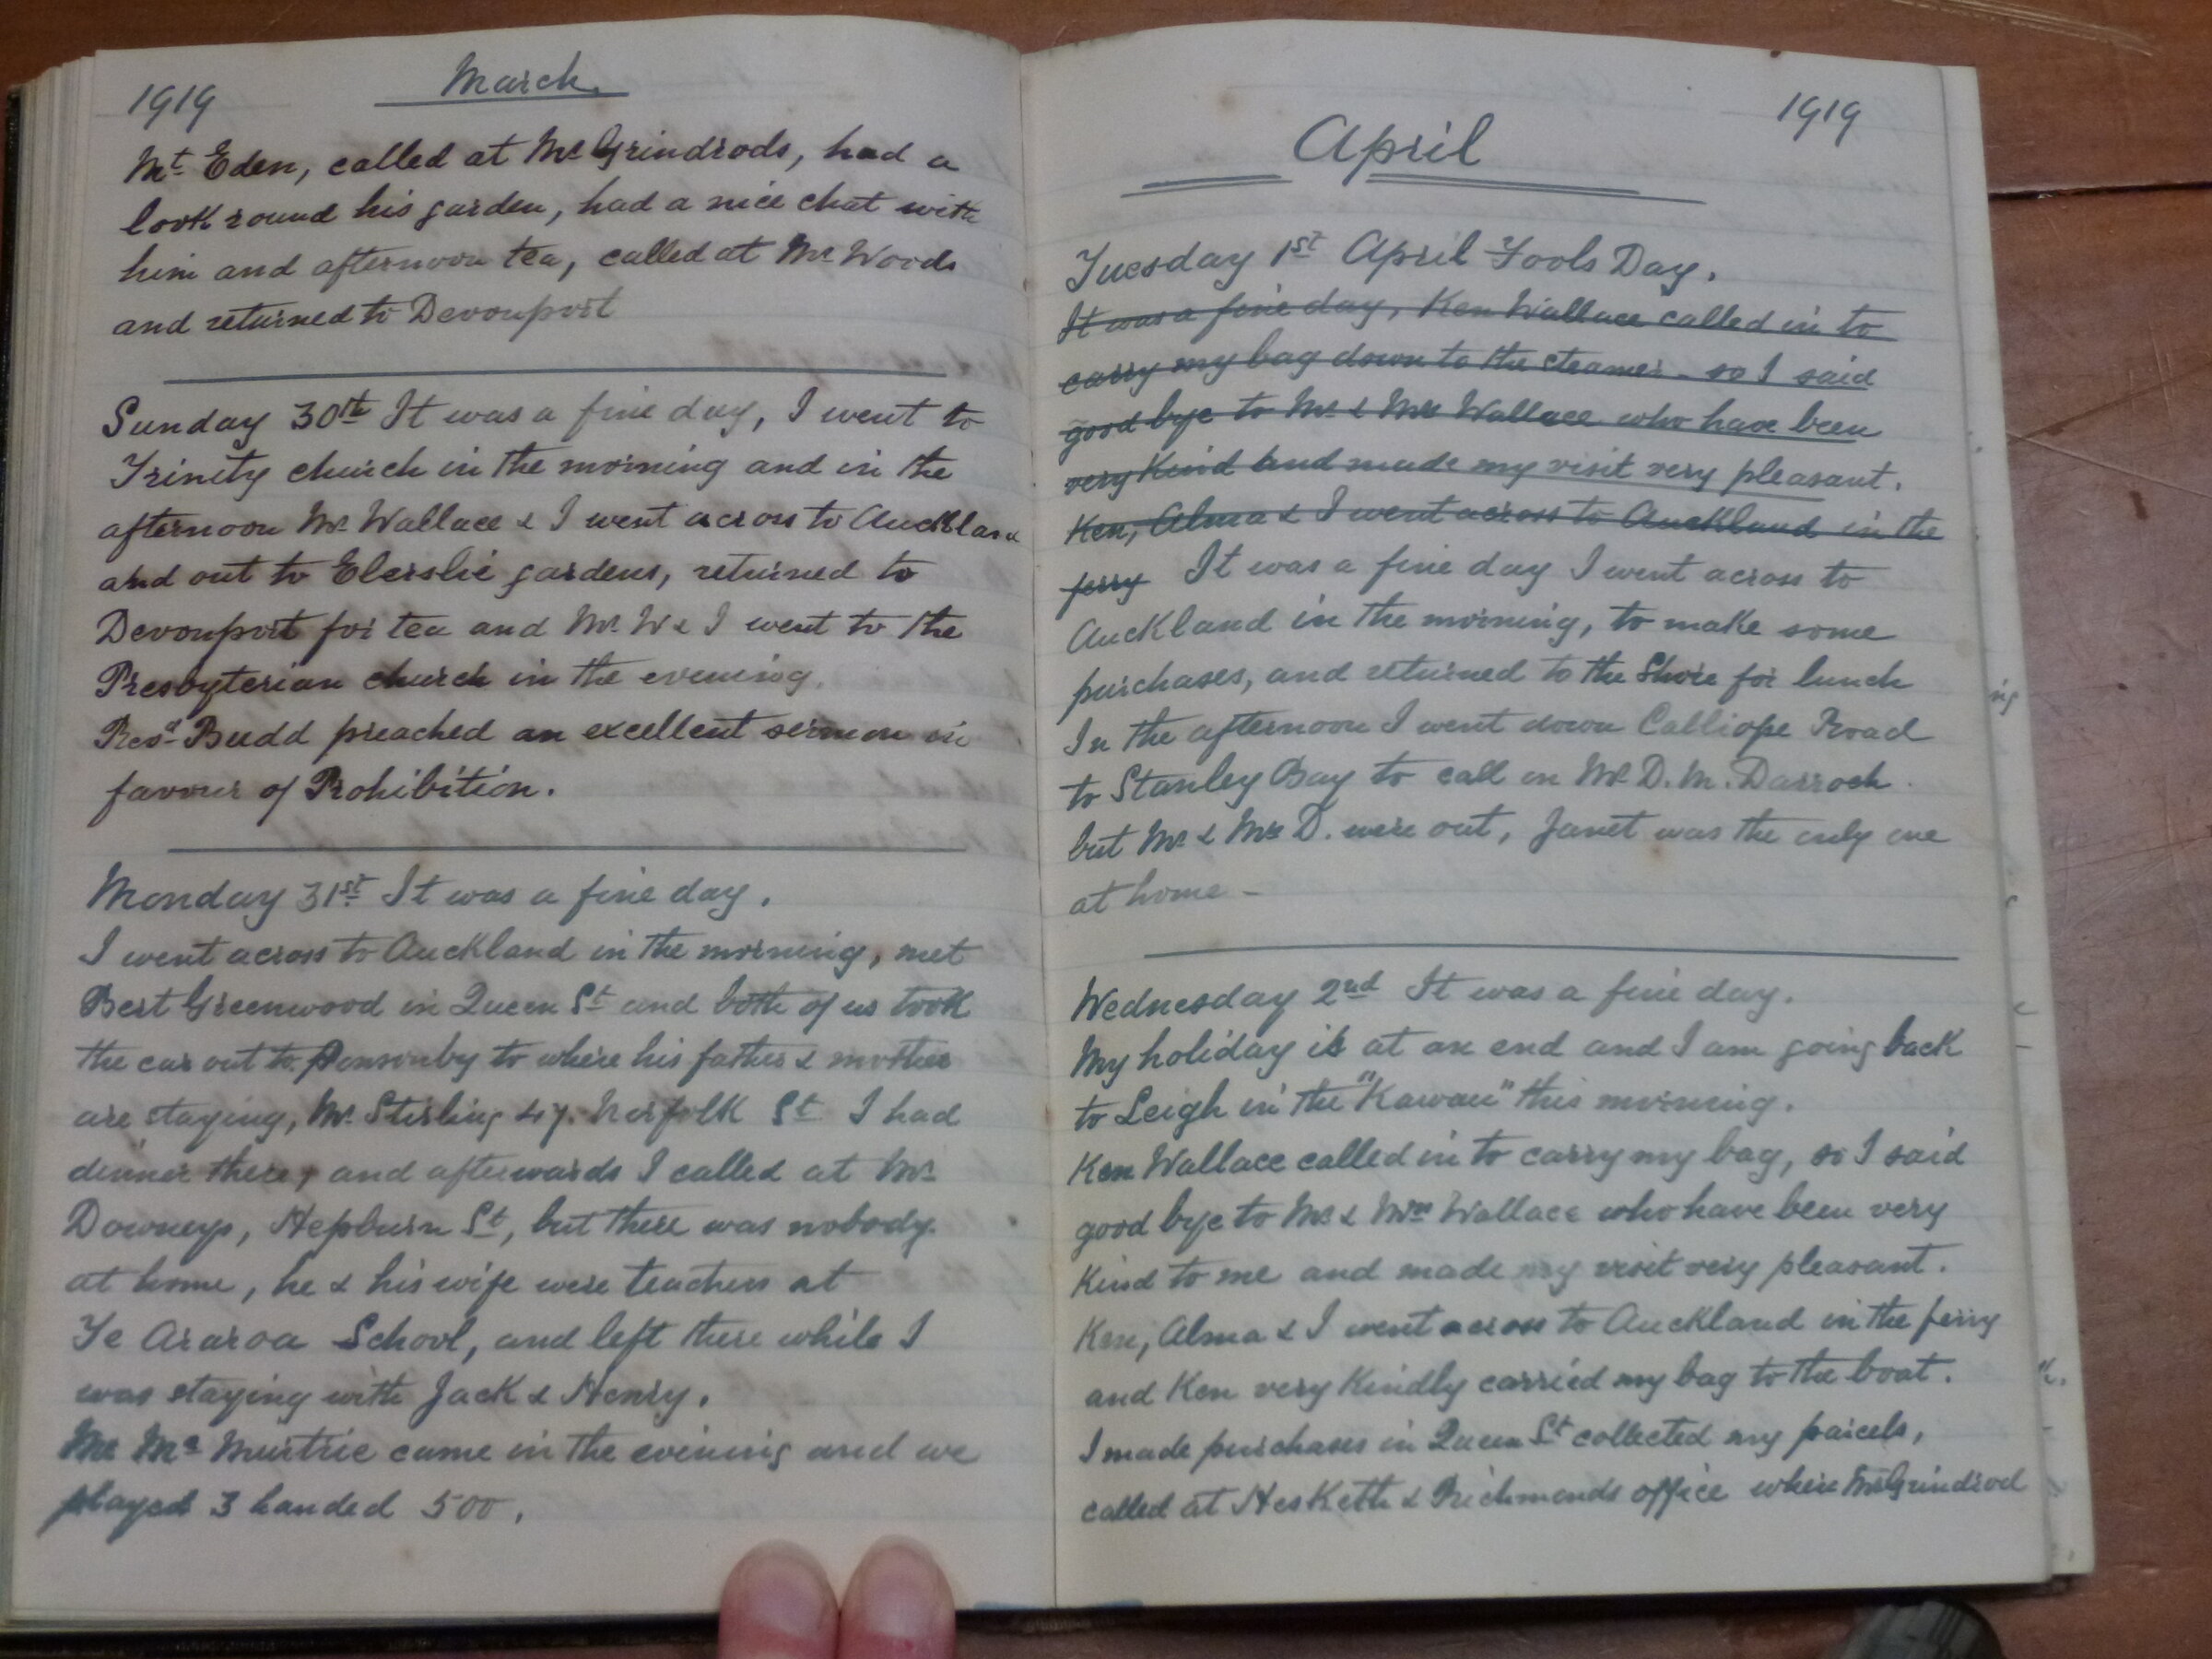 1919
March.
Mt Eden, called at Mr Grindrods, had a
look round his garden, had a nice chat with
him and afternoon tea, called at Mr Woods
and returned to Devonport
Sunday 30th It was a fine day, I went to
Trinity church in the morning and in the
afternoon Mr Wallace & I went across to Auckland
and out to Elerslie gardens, returned to
Devonport for tea and Mr W & I went to the
Presbyterian church in the evening.
Revd Budd preached an excellent sermon in
favour of Prohibition.
Monday 31st It was a fine day.
I went across to Auckland in the morning, met
Bert Greenwood in Queen St and both of us took
the car out to Ponsonby to where his father & mother
are staying, Mr Stirling 47. Norfolk St I had
dinner there, and afterwards I called at Mr
Downeys, Hepburn St, but there was nobody
at home, he & his wife were teachers at
Te Araroa School, and left there while I
was staying with Jack & Henry.
Mr Mc Murtrie came in the evening and we
played 3 handed 500.
1919
April
Tuesday 1st April Fools Day.
It was a fine day, Ken Wallace called in to
carry my bag down to the steamer - so I said
good bye to Mr & Mrs Wallace who have been
very kind and made my visit very pleasant.
Ken, Alma & I went across to Auckland in the
ferry It was a fine day I went across to
Auckland in the morning, to make some
purchases, and returned to the Shore for lunch
In the afternoon I went down Calliope Road
to Stanley Bay to call on Mr D. M. Darroch.
but Mr & Mrs D. were out, Janet was the only one
at home -
Wednesday 2nd It was a fine day.
My holiday is at an end and I am going back
to Leigh in the "Kawau" this morning.
Ken Wallace called in to carry my bag, so I said
good bye to Mr & Mrs Wallace who have been very
kind to me and made my visit very pleasant.
Ken, Alma & I went across to Auckland in the ferry
and Ken very kindly carried my bag to the boat.
I made purchases in Queen St collected my parcels,
called at Hesketh & Richmonds office where Mr Grindrod